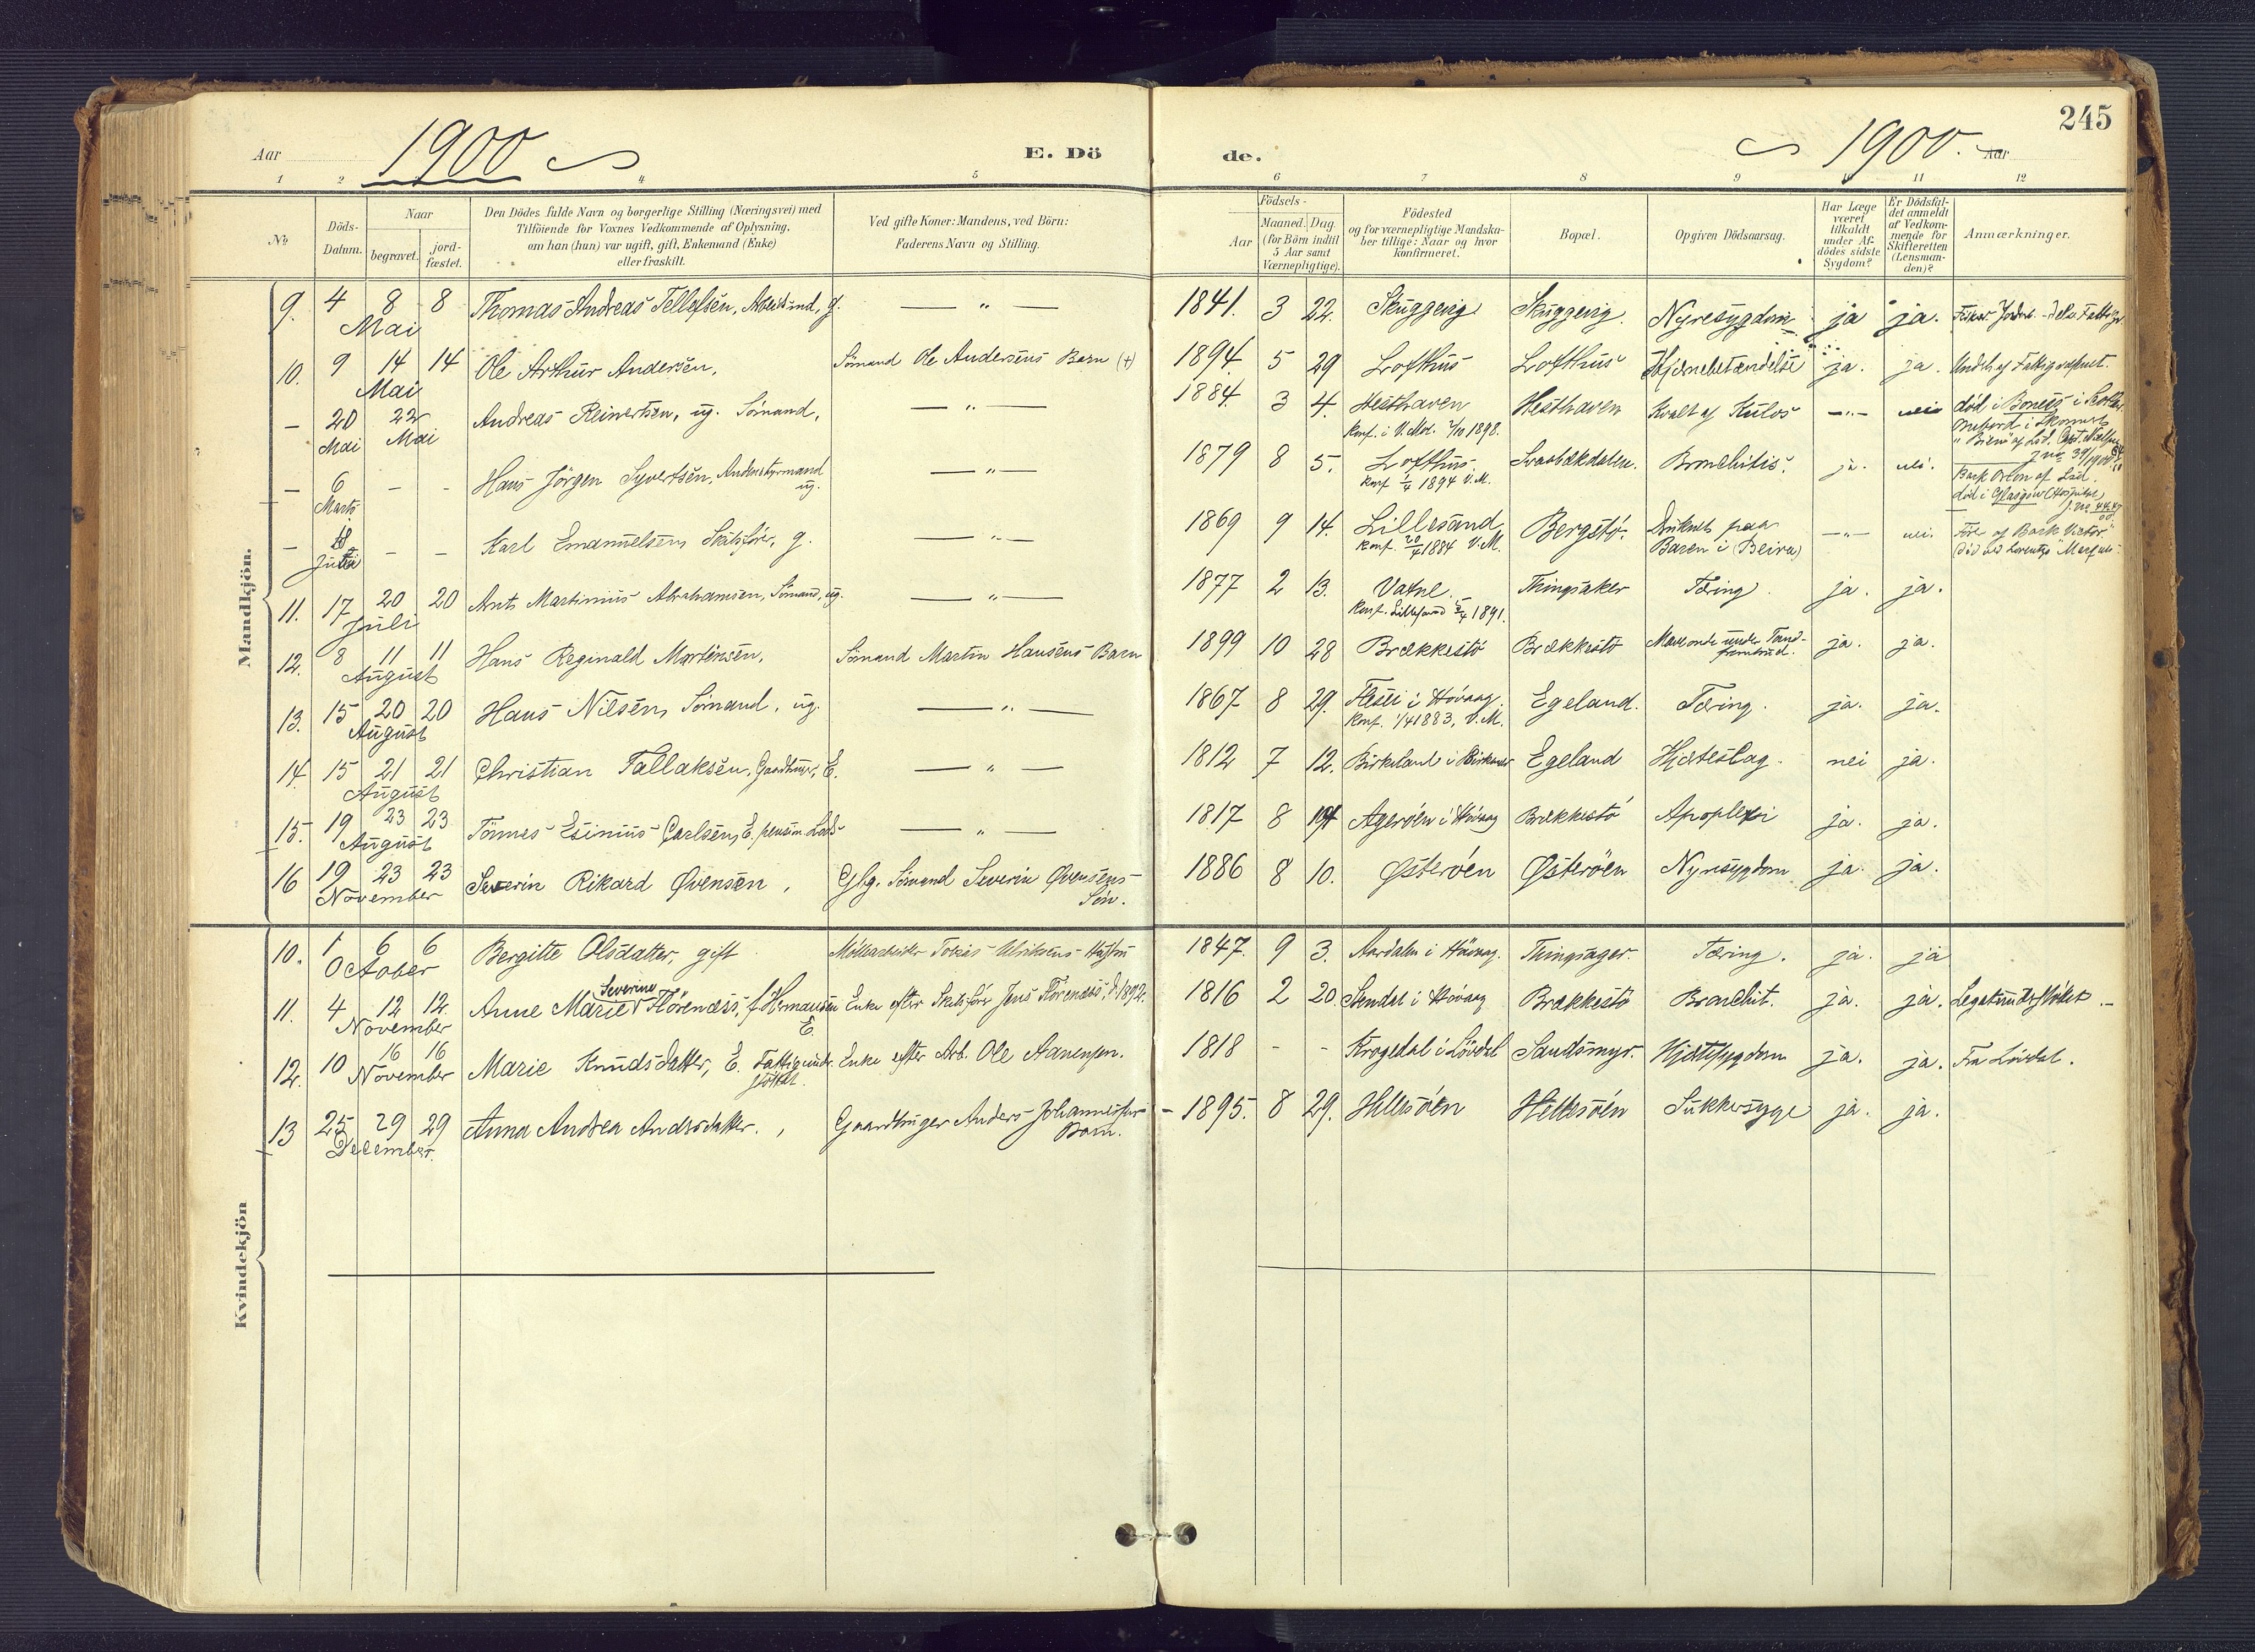 245
Aar 1900
E. Döde.
1900. Aar
1 2 4 5 6 7 8 9 10 11 12
No
Döds-Datum.
Naar
begravet.
jordfæstet.
Den Dödes fulde Navn og borgerlige Stilling (Næringsvei) med
Tilföiende for Voxnes Vedkommende af Oplysning,
om han (hun) var ugift, gift, Enkemand (Enke)
eller fraskilt.
Ved gifte Koner: Mandens, ved Börn:
Faderens Navn og Stilling.
Födsels-
Aar
Maaned. Dag
(for Börn indtil
5 Aar samt
Værnepligtige).
Födested
og for værnepligtige Mandska-
ber tillige: Naar og hvor
konfirmeret.
Bopæl.
Opgiven Dödsaarsag.
Har Læge
været
tilkaldt
under Af-
dödes sidste
Sygdom?
Er Dödsfal-
det anmeldt
af Vedkom-
mende for
Skifteretten
(Lensman-
den)?
Anmærkninger.
Mandkjön.
9. 4 8 8 Mai Thomas Andreas Tellefsen, Arbeidsmd, g. — " — 1841. 3 22. Skuggevig Skuggevig. Nyresygdom ja ja.
10. 9 14 14 Mai Ole Arthur Andersen, Sömand Ole Andersens Barn (+) 1894. 5 29 Lofthus Lofthus Hjernebetændelse ja. ja. Underst. af Fattigvæsenet.
— 20 Mai 22 Mai Andreas Reinertsen, ug. Sömand, — " — 1884. 3 4. Hesthaven Hesthaven Kvalt af Kulos —"— nei död i Boness i
Konf. i V. Mol. 2/10 1898.
— 6 Marts — — Hans Jörgen Syvertsen, Understyrmand ug. — " — 1879 8 5. Lofthus Svarbækdalen. Bronchitis. ja. nei. Bark Orion af L.sand.
Konf 1/4 1894 V.M.
död i Glasgow (Hospital)
— 18 — — Karl Emanuelsen, Skibsförer, g. — " — 1869 9 14. Lillesand Bergstö. Druknet paa Baren i (Beira) —"— nei. Förer af Bark Victor
Konf. 20/4 1884 V.M.
11. 17 20 20 Juli Arnt Martinius Abrahamsen, Sömand, ug. — " — 1877 2 13. Vatne. Tingsaker Tæring. ja. ja.
Konf. Lillesand 5/4 1891.
12. 8 11 11 August Hans Reginald Martinsen, Sömand Martin Hansens Barn 1899 10 28 Brækkestö Brækkestö Maveonde under Tandfrembrud. ja. ja.
13. 15 20 20 August Hans Nilsen, Sömand, ug. — " — 1867 8 29. i Hövaag. Egeland. Tæring. ja. ja.
Konf. 1/4 1883, V.M.
14. 15 21 21 August Christian Tallaksen, Gaardbruger, E. — " — 1812 7 12. Birkeland i Birkenes Egeland Hjerteslag. nei ja.
15. 19 23 23 August Tönnes Esinius Carlsen, E. pension. Lods — " — 1817 8 Ageröen i Hövaag Brækkestö Apoplexi ja. ja.
16 19 23 23 November Severin Rikard Øvensen, Gbg. Sömand Severin Øvensens Sön. 1886 8 10. Østeröen Østeröen Nyresygdom ja. ja.
Kvindekjön
10. 1 6 6 October Bergitte Olsdatter, gift Möllearbeider Tobias Ulriksens Hustru 1847. 9 3. Aardalen i Hövaag. Tingsager. Tæring. ja. ja
11. 4 12 12. November Anne Marie Severine Flörenæss, f. Hermansen E Enke efter Skibsförer Jens Flörenæss, d. 1892. 1816 2 20. Stendal i Hövaag Brækkestö Bronchit. ja. ja. Legatunderstöttet.—
12. 10 16 16 November Marie Knudsdatter, E. Fattigunderstöttet. Enke efter Arb. Ole Aanensen. 1818 - - Krogedal i Lövdal Sandsmyr. Hjertesygdom ja. ja. Fra Lövdal.
13 25 29 29 December. Anna Andrea Andersdatter. Gaardbruger Anders Johannessens Barn. 1895. 8 29. Hellesöen Hellesöen Sukkersyge ja. ja.